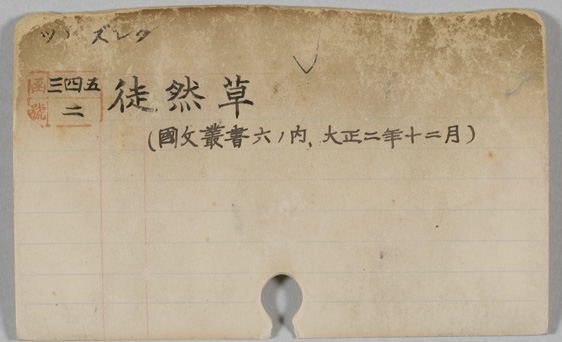 ツ ズレク
函號
三四五
二
徒然草
(國文叢書六ノ内、大正二年十二月)